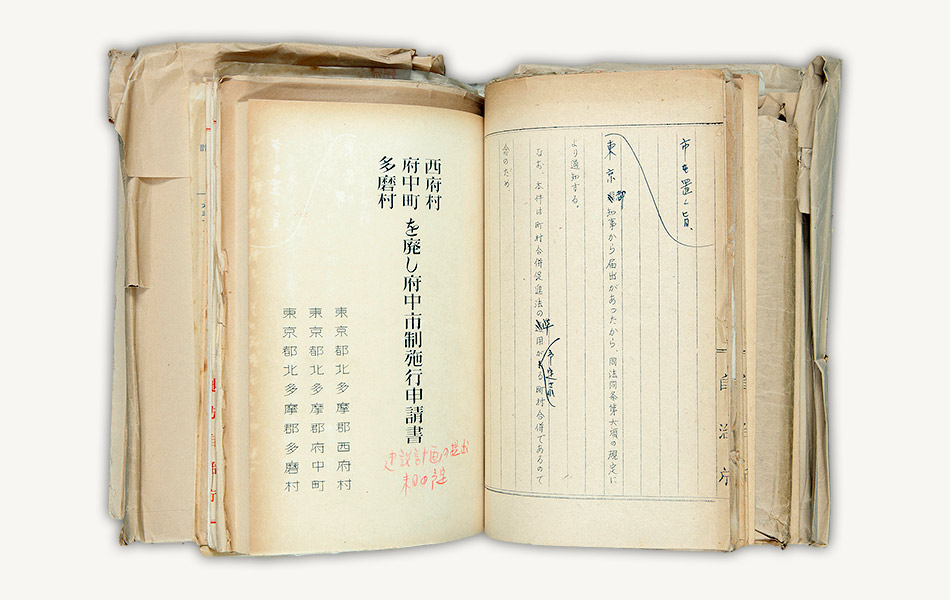 市を置く旨、
東京都知事から届出があったから、同法同条第六項の規定に
より通知する。
なお、本件は町村合併促進法の適用がある町村合併であるので
念のため
自治庁
西府村
府中町
多磨村
を廃し府中市制施行申請書
東京都北多摩郡西府村
東京都北多摩郡府中町
東京都北多摩郡多磨村
建設計画の提出